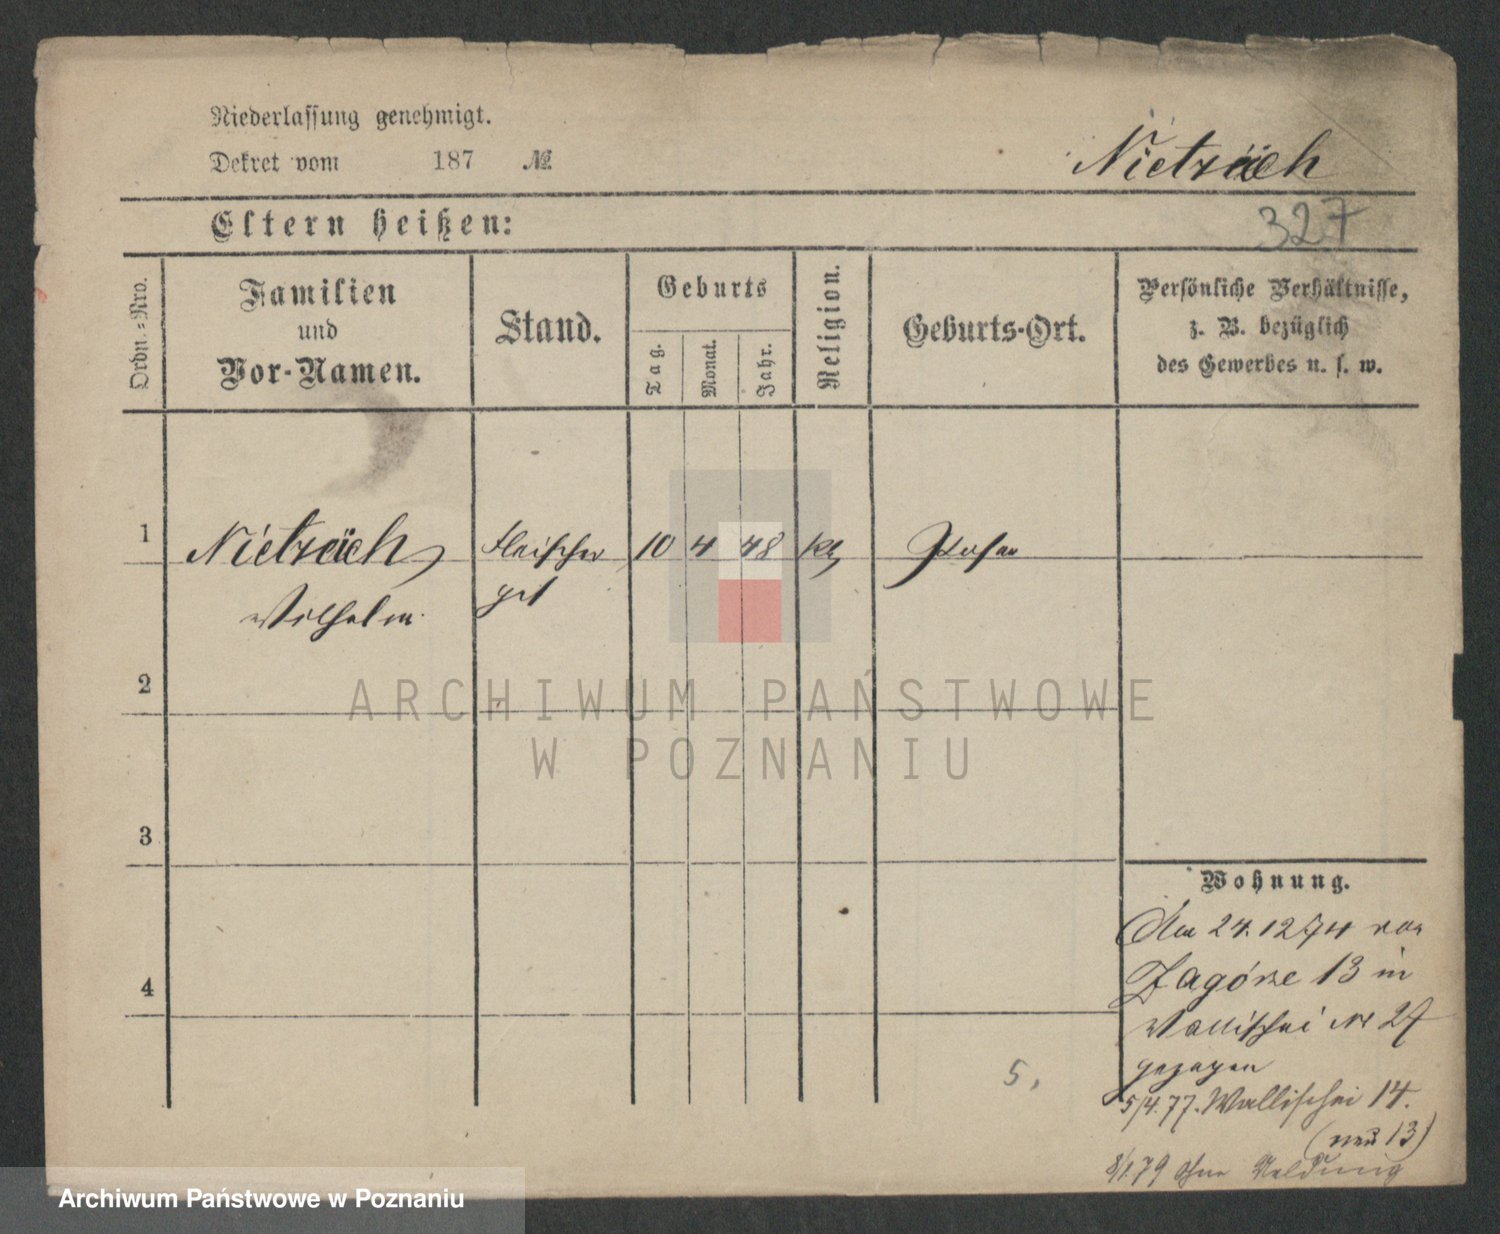 Niederlassung genehmigt.
Dekret vom 187 №
Nietzräch
327
Eltern heißen:
Ordn.=Nro.
Familien
und
Vor-Namen.
Stand.
Geburts
Tag.
Monat.
Jahr.
Religion.
Geburts-Ort.
Persönliche Verhältnisse,
z. B. bezüglich
des Gewerbes u. s. w.
1
Fleischer 10 4 48 kth Posen
Wilhelm. ges
2
ARCHIWUM PAŃSTWOWE
W POZNANIU
3
4
Wohnung.
Am 24.12 74 von
Zagórze 13 in
Wallischei Nr 27
gezogen
5/4.77. Wallischei 14.
(neu 13)
8/1.79 ohne Meldung
5.
Archiwum Państwowe w Poznaniu